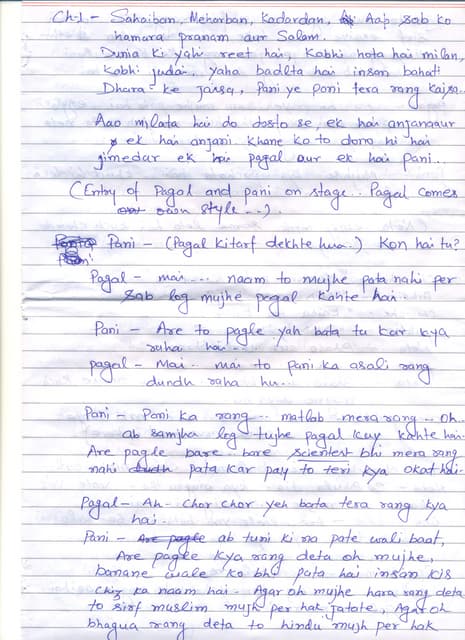 Ch-1 - Sahaiban, Meharban, Kadardan, Aap sab ko
hamara pranam aur Salam.
Dunia ki yahi reet hai, Kabhi hota hai milan,
Kabhi judai, yaha badlta hai insan bahati
Dhara ke jaisa, Pani ye pani tera rang kaisa..
Aao milata hai do dosto se, ek hai anjana aur
ek hai anjani. Khane ko to dono hi hai
jimedar ek hai pagal aur ek hai pani..
(Entry of Pagal and pani on stage.. Pagal comes
own style...).
Pani - (Pagal ki tarf dekhte hua.) Kon hai tu?
Pagal - mai.... naam to mujhe pata nahi per
sab log mujhe pagal kahte hai..
Pani - Are to pagle yah bata tu kar kya
raha hai...
pagal - Mai.. mai to Pani ka asali rang
dundh raha hu..
Pani - Pani ka rang... matlab mera rang.. Oh..
ab samjha log tujhe pagal kuy kahte hai.
Are pagle bare bare scientest bhi mera rang
nahi pata kar pay to teri kya okat hai.
Pagal - Ah - Chor chor yeh bata tera rang kya
hai..
Pani - Are pagle ab tuni ki na pate wali baat,
Are pagle kya rang deta oh mujhe,
banane wale ko bhi pata hai insan kis
chiz ka naam hai. Agar oh mujhe hara rang deta
to sirf muslim mujh per hak jatate, Agar oh
bhagua rang deta to hindu mujh per hak